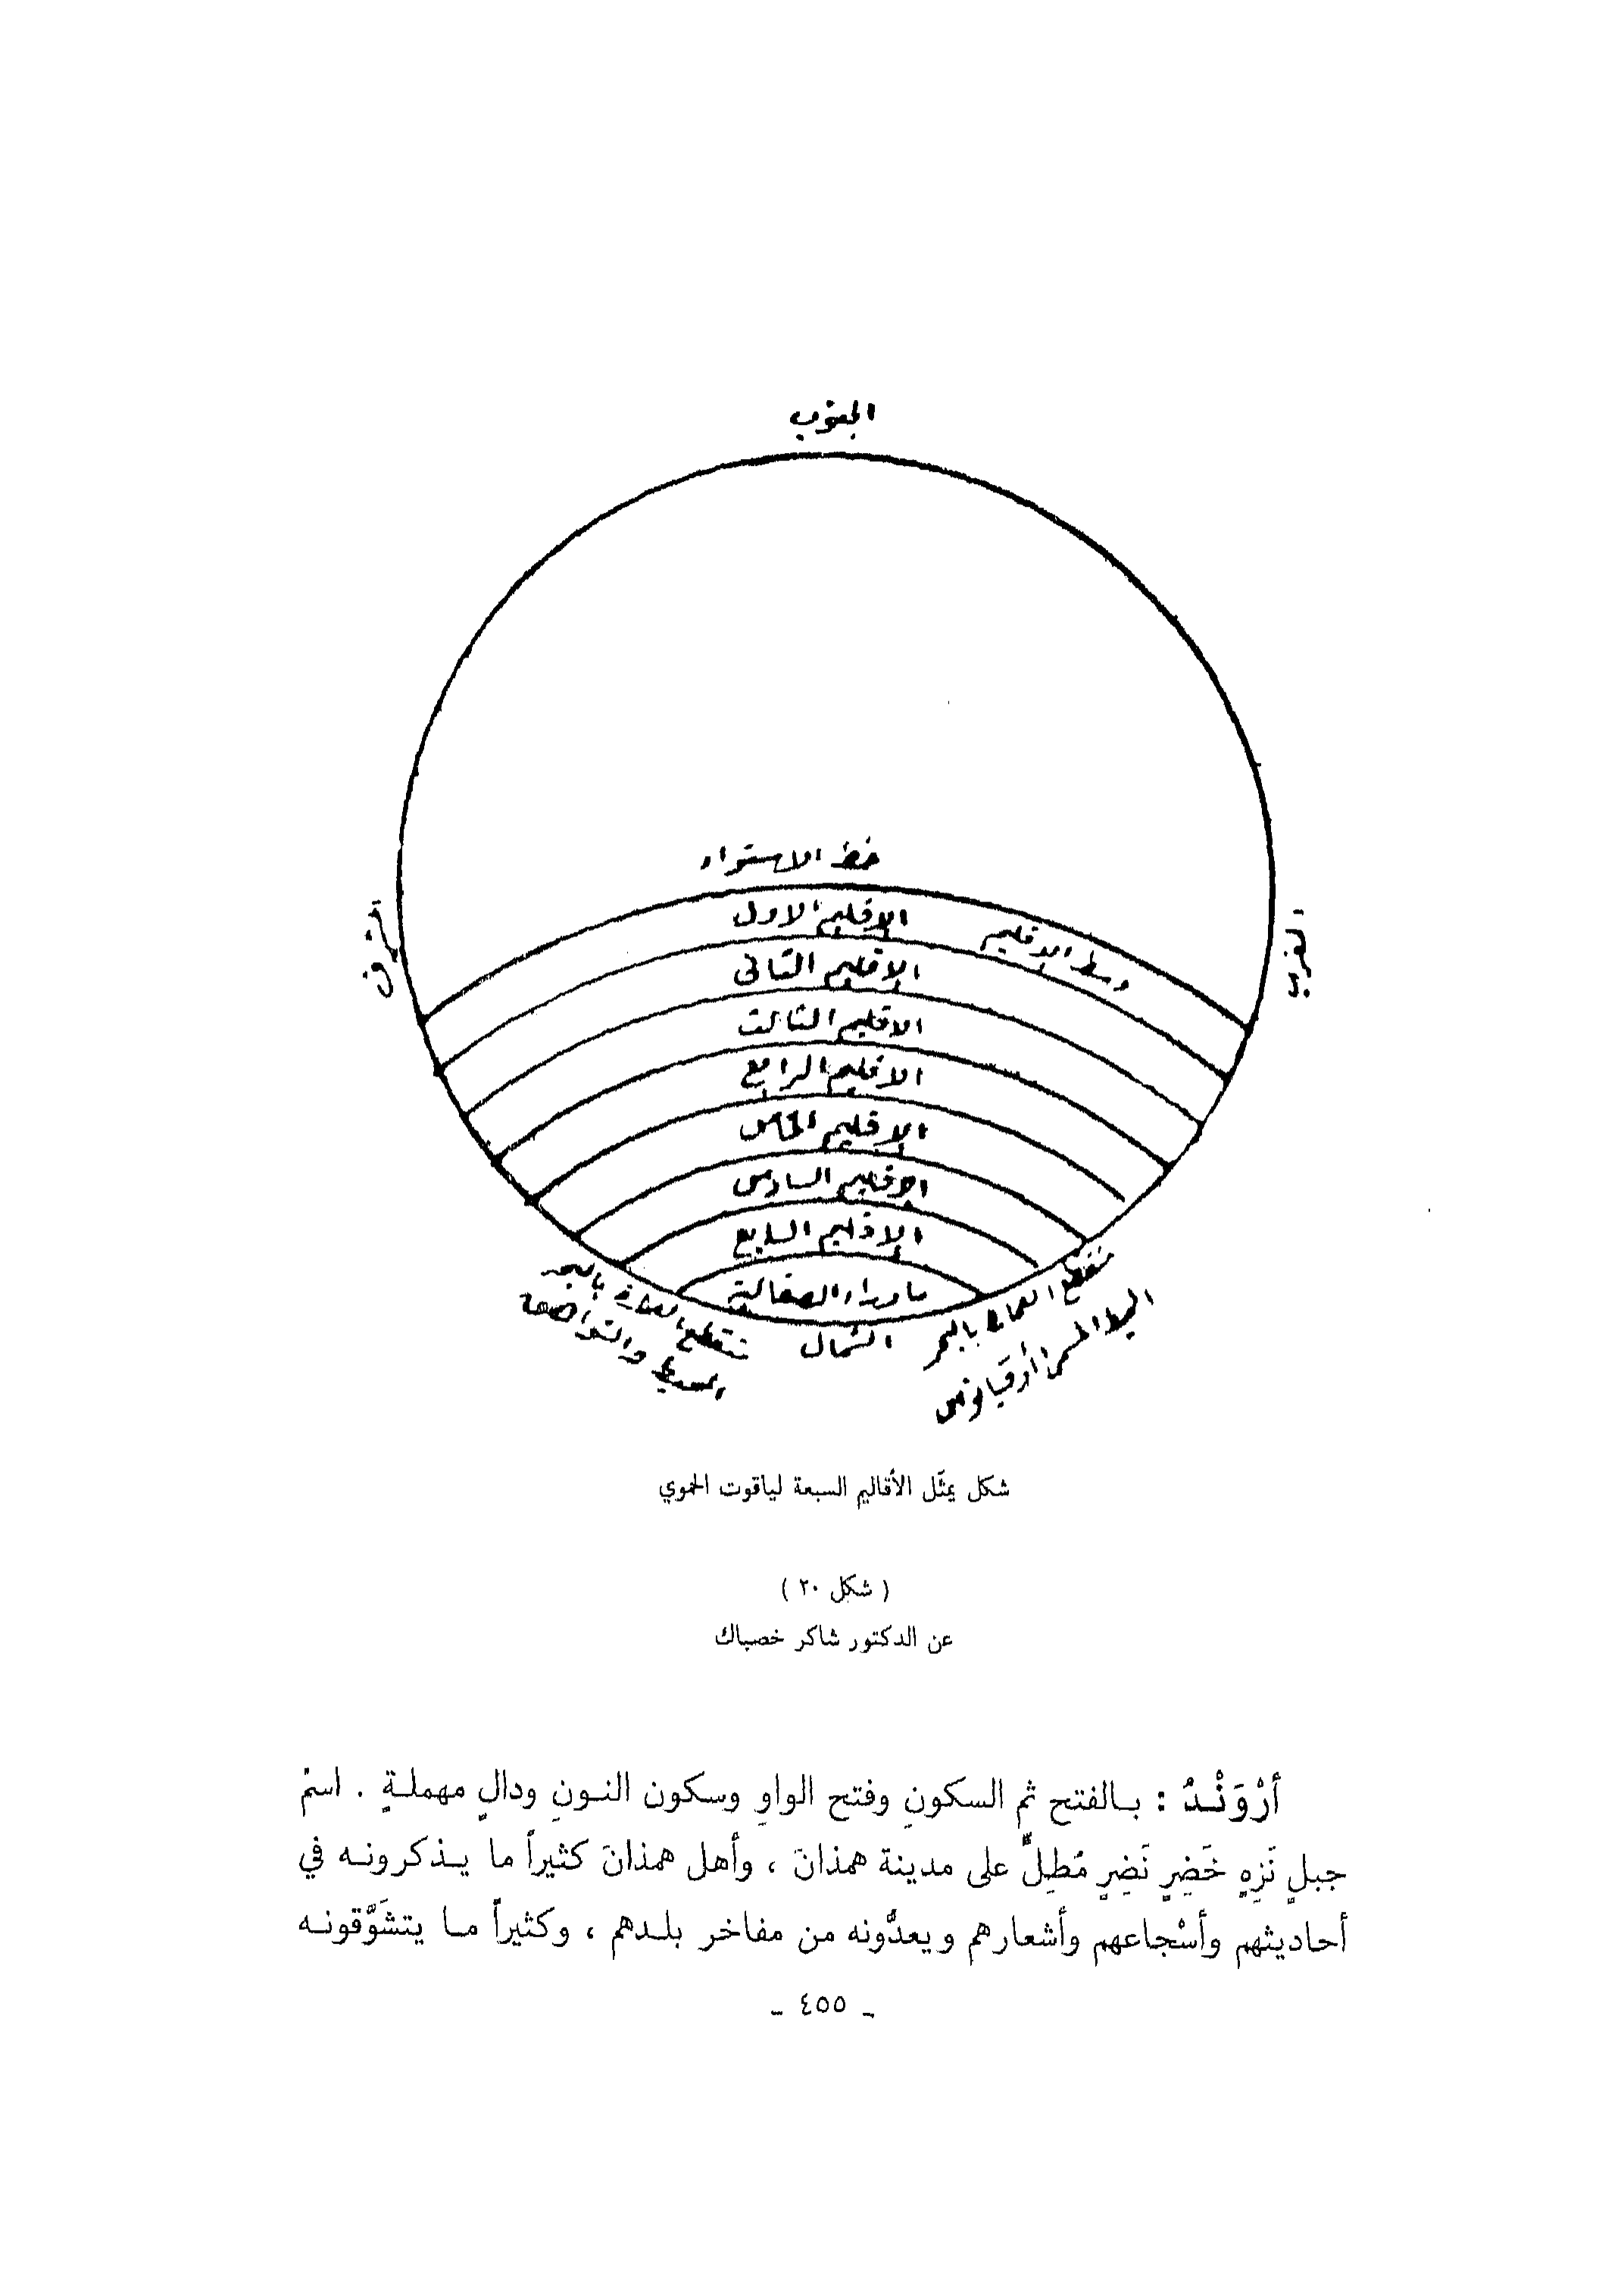 الجنوب
خط الاستواء
الشرق
الغرب
الإقليم الأول
وسط الإقليم
الإقليم الثاني
الاقليم الثالث
الاقليم الرابع
الإقليم الخامس
الاقليم السادس
الإقليم السابع
ما وراء الصقالبة
الشمال
منقطع العمارة بالبحر
منقطع العمارة بالبحر
شكل يمثّل الأقاليم السبعة لياقوت الحموي
( شكل ٢٠ )
عن الدكتور شاكر خصباك
أرْوَنْـدُ : بـالفتح ثم السكونِ وفتح الواوِ وسكون النـونِ ودالٍ مهملـةٍ . اسمُ
جبلٍ نَزِهٍ خَضِرٍ نَضِرٍ مُطِلٍّ على مدينة همذانَ ، وأهل همذانَ كثيراً ما يـذكرونـه في
أحاديثهم وأسْجاعهم وأشعارهم ويعدُّونه من مفاخر بلـدهم ، وكثيراً مـا يتشوَّقونـه
ـ ٤٥٥ ـ